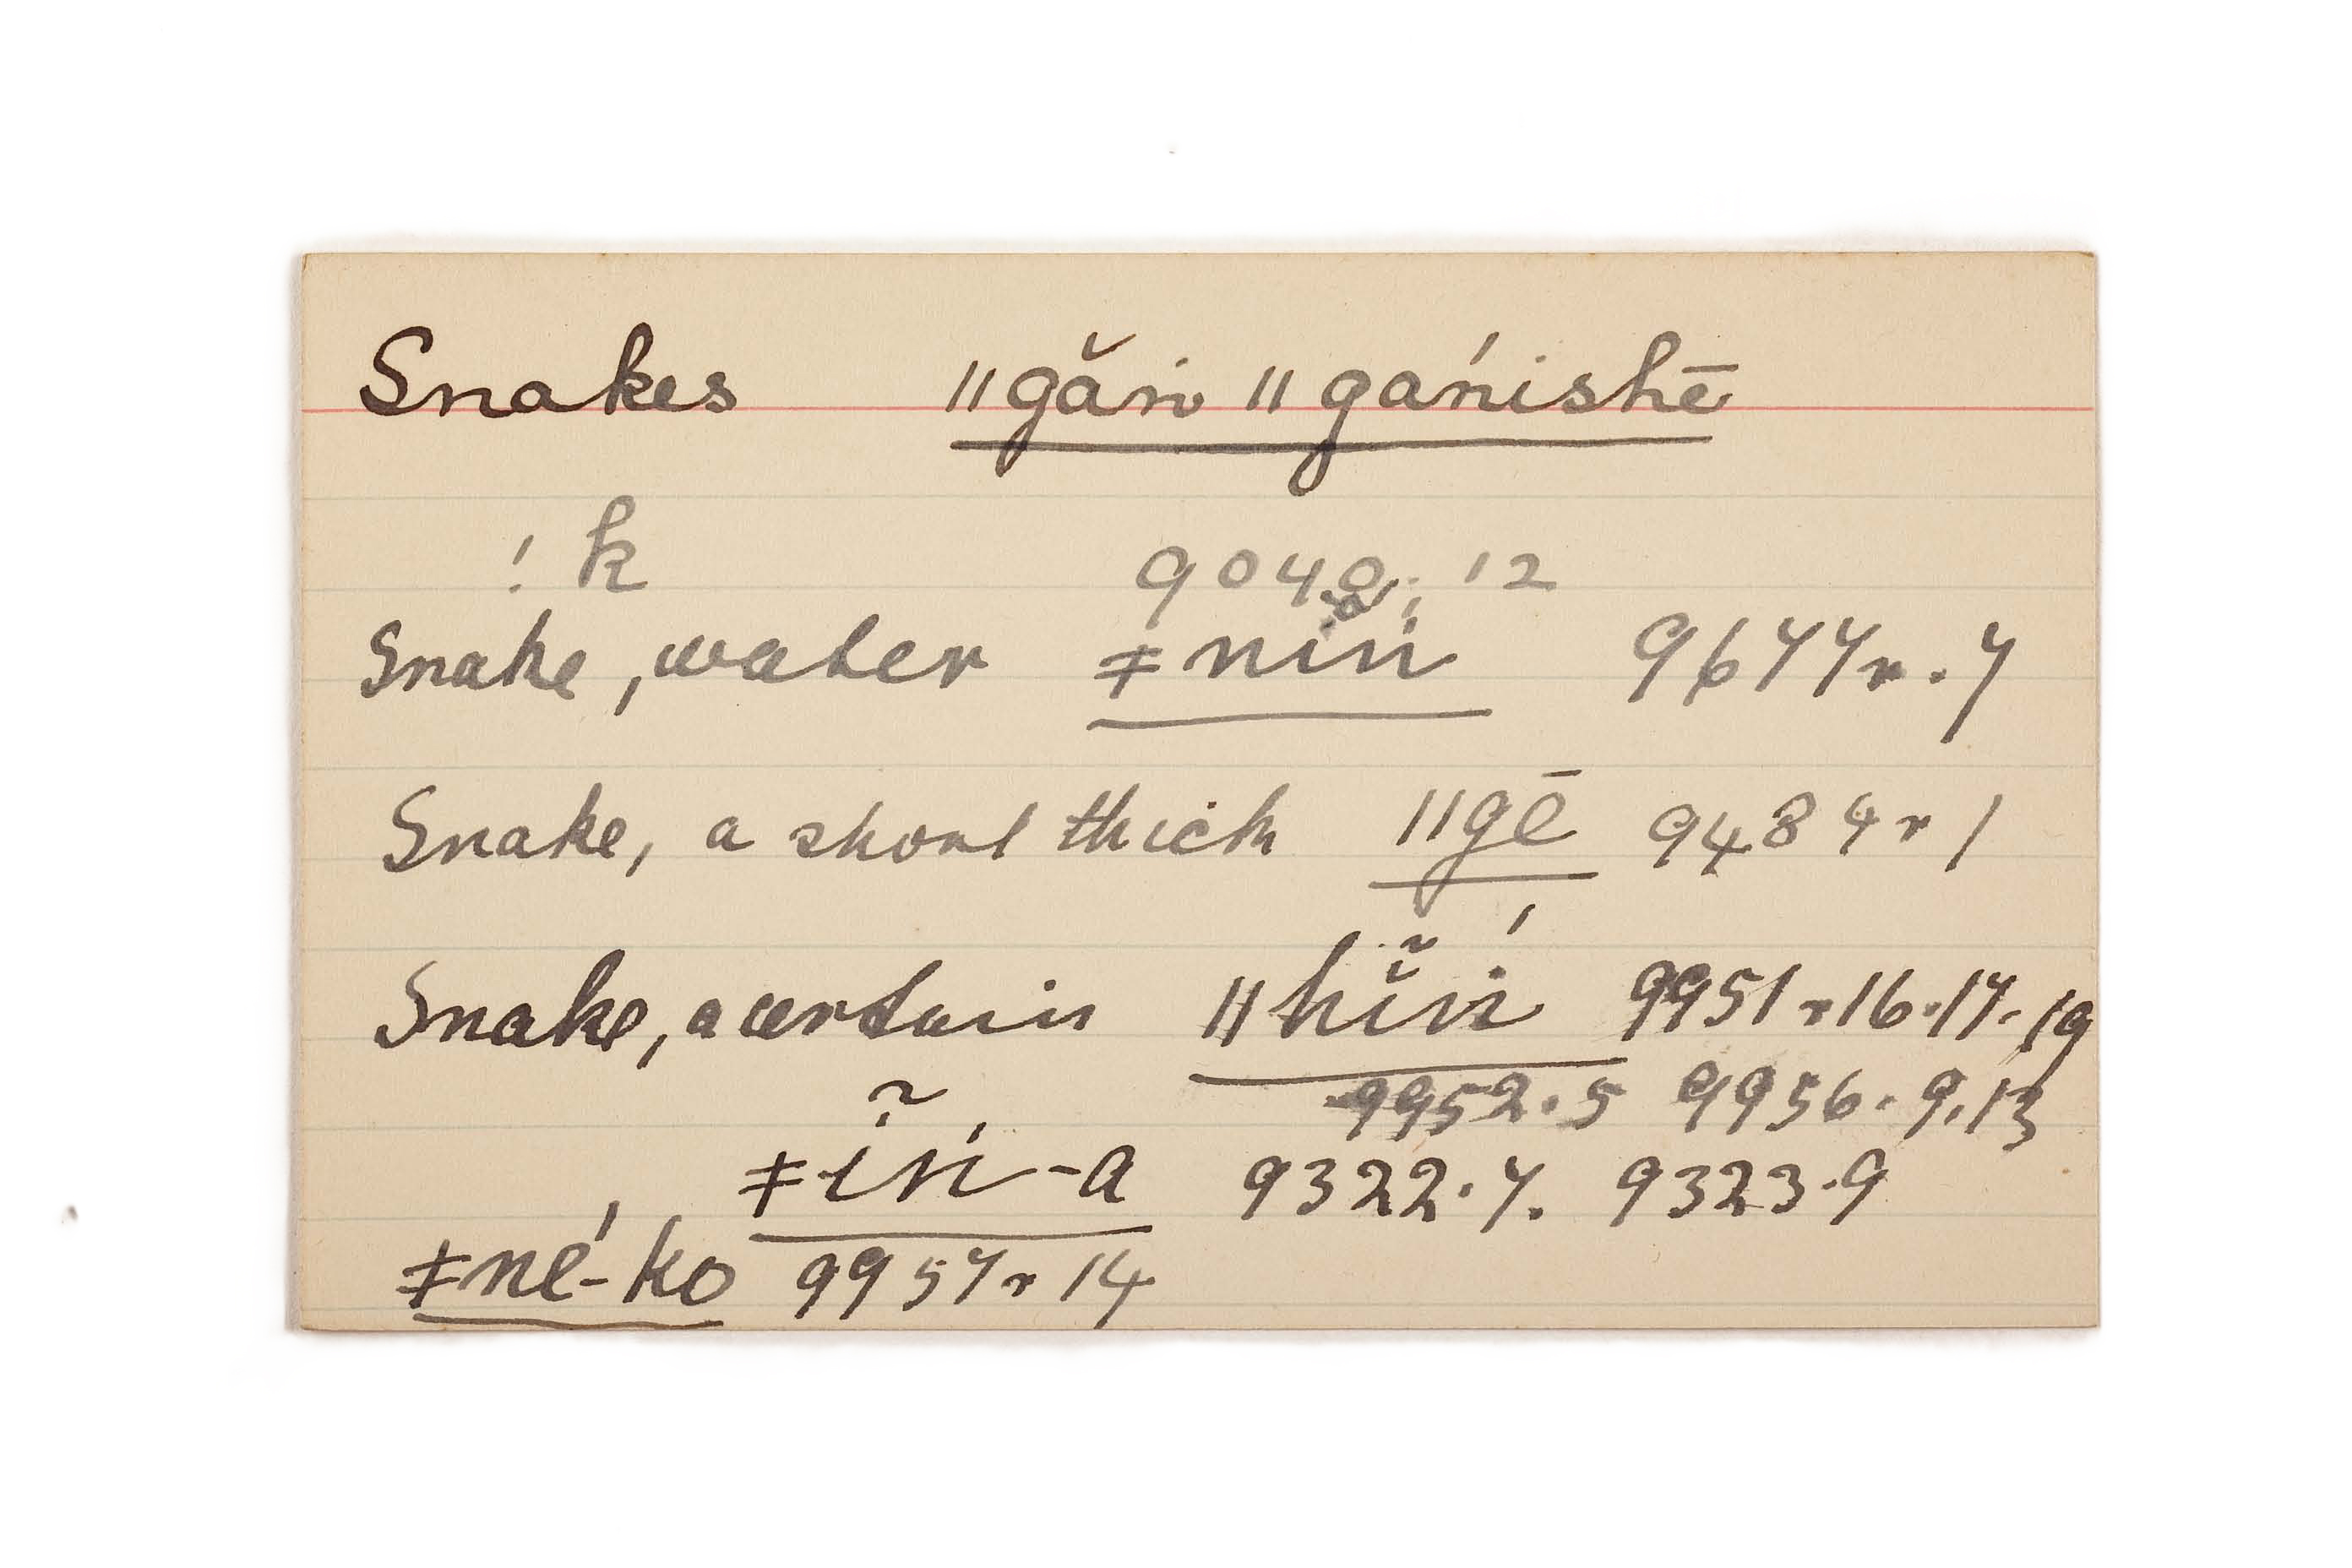 Snakes ǁgăṅ ǁgáṅishē
!k 9040. 12
Snake, water ǂniṅ 9677r. 7
Snake, a short thick ǁgē 9484r 1
Snake, a certain ǁhĭ̃ṅ́ 9951r 16. 17. 19
9952. 5 9956. 9. 13
ǂĩṅ-a 9322. 7. 9323. 9
ǂné-ko 9957r 14